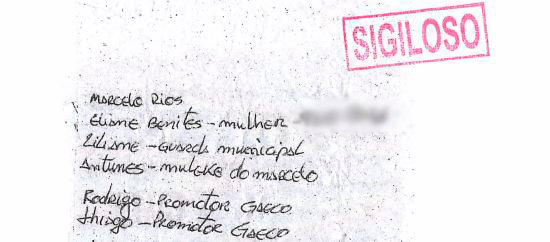 SIGILOSO
Marcelo Rios
Eliane Benites - mulher -
Liliane - Guarda municipal
Antunes - muleke do marcelo
Rodrigo - Promotor GAECO
thiago - Promotor GAECO